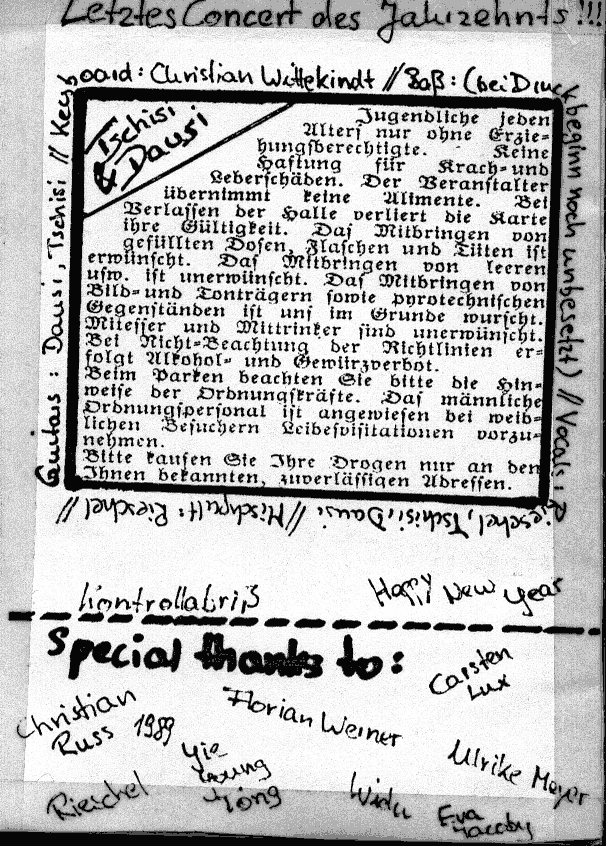 Letztes Concert des Jahrzehnts!!!
Guitars: Dausi, Tschisi // Keyboard: Christian Wittekindt // Baß: (bei Druckbeginn noch unbesetzt) // Vocals: Rieschel, Tschisi, Dausi // Mischpult: Rieschel //
Tschisi
& Dausi
Jugendliche jeden
Alters nur ohne Erzie-
hungsberechtigte. Keine
Haftung für Krach-und
Leberschäden. Der Veranstalter
übernimmt keine Alimente. Bei
Verlassen der Halle verliert die Karte
ihre Gültigkeit. Das Mitbringen von
gefüllten Dosen, Flaschen und Tüten ist
erwünscht. Das Mitbringen von leeren
usw. ist unerwünscht. Das Mitbringen von
Bild-und Tonträgern sowie pyrotechnischen
Gegenständen ist uns im Grunde wurscht.
Mitesser und Mittrinker sind unerwünscht.
Bei Nicht-Beachtung der Richtlinien er-
folgt Alkohol- und Gewürzverbot.
Beim Parken beachten Sie bitte die Hin-
weise der Ordnungskräfte. Das männliche
Ordnungspersonal ist angewiesen bei weib-
lichen Besuchern Leibesvisitationen vorzu-
nehmen.
Bitte kaufen Sie Ihre Drogen nur an den
Ihnen bekannten, zuverlässigen Adressen.
Kontrollabriß
Happy New Year
Special thanks to:
Carsten
Lux
Christian
Russ 1989
Florian Weiner
Young
Ulrike Meyer
Rieschel
Eva
Jaccoby